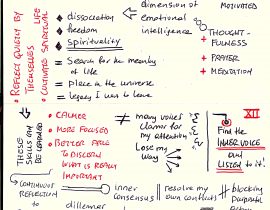 dimension of
emotional
intelligence
MOTIVATED
♦ dissociation
♦ freedom
♦ Spirituality
+ THOUGHT-
FULNESS
+ PRAYER
+ MEDITATION
= Search for the meaning
of life
= Place in the universe
= legacy I want to leave
• REFLECT QUIETLY BY
THEMSELVES
CULTIVATE SPIRITUAL
LIFE
THESE
SKILLS CAN
BE LEARNED
• CALMER
• MORE FOCUSED
• BETTER ABLE
TO DISCERN
WHAT IS REALLY
IMPORTANT
≠ many voices
clamor for
my attention
Lose my
way
XII
Find the
INNER VOICE
and
LISTEN to it!
CONTINUOUS
REFLECTION
TO
inner
consensus
resolve my
own conflict
≠ blocking
purposeful